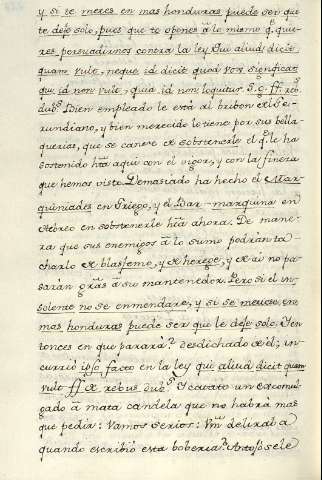 y si se metes en mas honduras puede ser que
te deje solo, pues que te opones á lo mismo q.e quie-
res persuadirnos contra la ley Qui aliud dicit
quam vult, neque id dicit quod vox significat
qui id non vult, quia id non loquitur. I. 3. ff. reb.
dub.s Bien empleado le está al bribon
rundiano, y bien merecido lo tiene por sus bella-
querias, que se canse de sostenerle el q.e le ha
sostenido hta aqui con el vigor, y con la fineza
que hemos visto. Demasiado ha hecho el Mar-
quiniades en Griego, y el Bar-marquina en
Hebreo en sostenerle hta ahora. De mane-
ra que sus enemigos á lo sumo podrian ta-
charlo de blasfemo, y de herege, y de ai no pa-
saran grãs a su mantenedor. Pero si el in-
solente no se enmendare, y si se metiese en
mas honduras puede ser que le deje solo. Y en-
tonces en que parará? desdichado de él; in-
currió ipso facto en la ley qui aliud dicit quam
vult ff. de rebus dub.s Y catate un excomul-
gado á mata candela que no habrá mas
que pedir. Vamos serios: Vm delira? a
quando escribió esta boberia? Antojosele